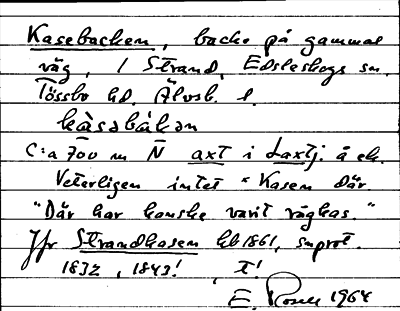 Kasebacken, backe på gammal
väg, i Strand, Edsleskogs sn,
Tössbo hd. Älvsb. l.
kàsabàkan
C:a 700 m N axt i Laxtj. å ek.
Veterligen intet "Kasen där.
"Där har kanske varit vägkas."
Jfr Strandkasen hb 1861, snprot.
1832, 1843!, T!
E. 1964